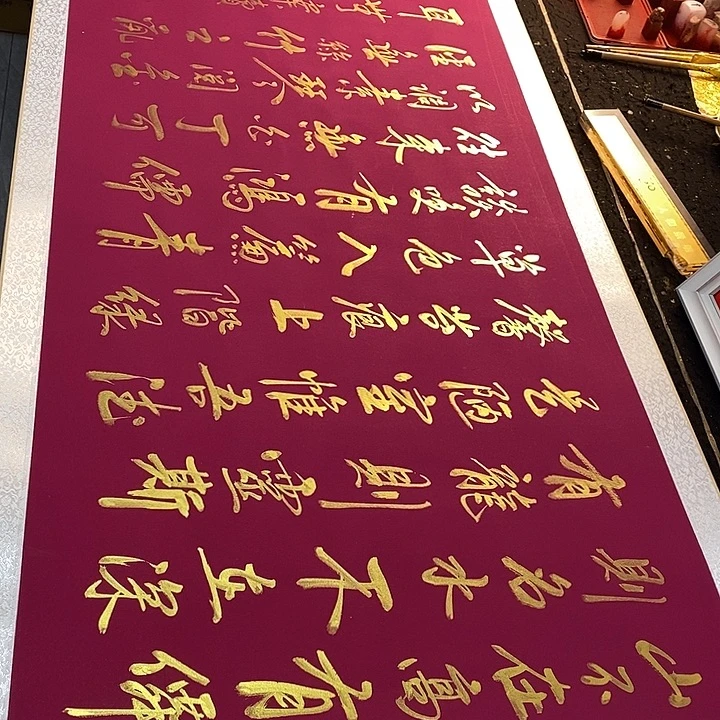 山不在高有僊
則名水不在深
有龍則靈斯
是陋室惟吾德
馨苔痕上階綠
草色入簾青
談笑有鴻儒
往來無白丁可
以調素琴閱金
經無絲竹之亂
耳